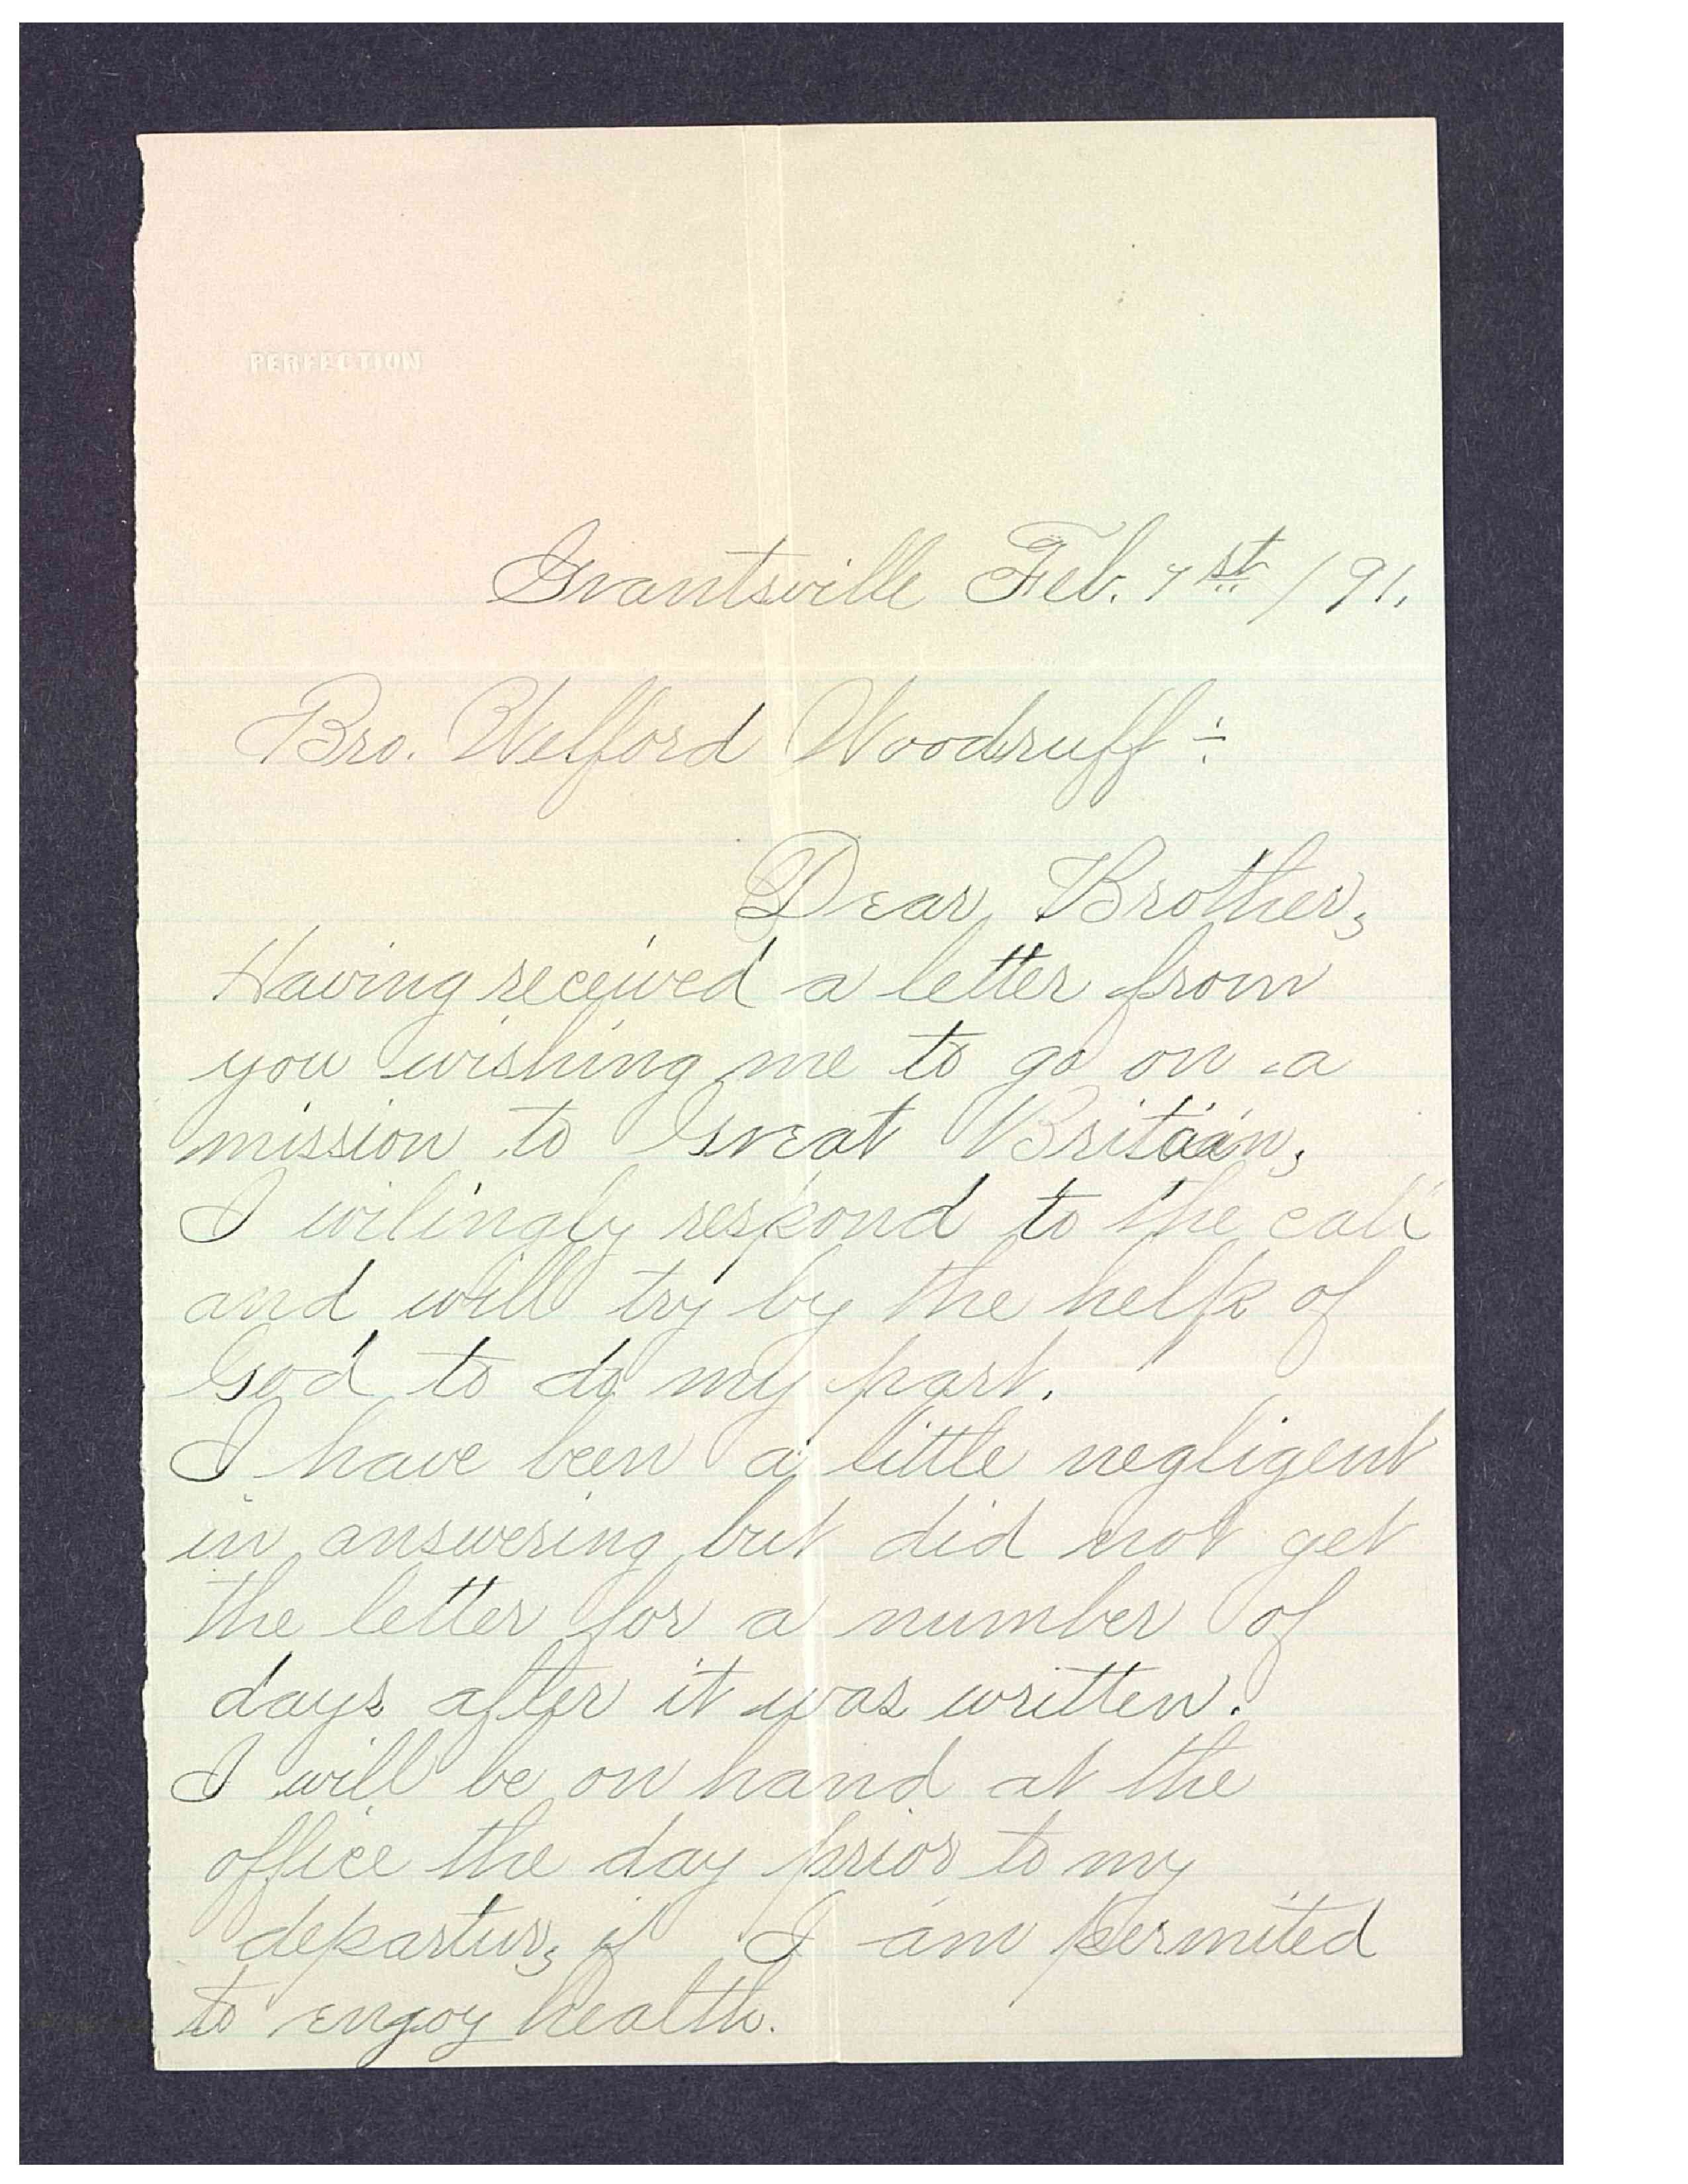 PERFECTION
Grantsville Feb. 7st /91.
Bro. Welford Woodruff:-
Dear Brother,
Having received a letter from
you wishing me to go on a
mission to Great Britain,
I wilingly respond to the call
and will try by the help of
God to do my part.
I have been a little negligent
in answering but did not get
the letter for a number of
days after it was written.
I will be on hand at the
office the day prior to my
departur, if I am permited
to engoy health.